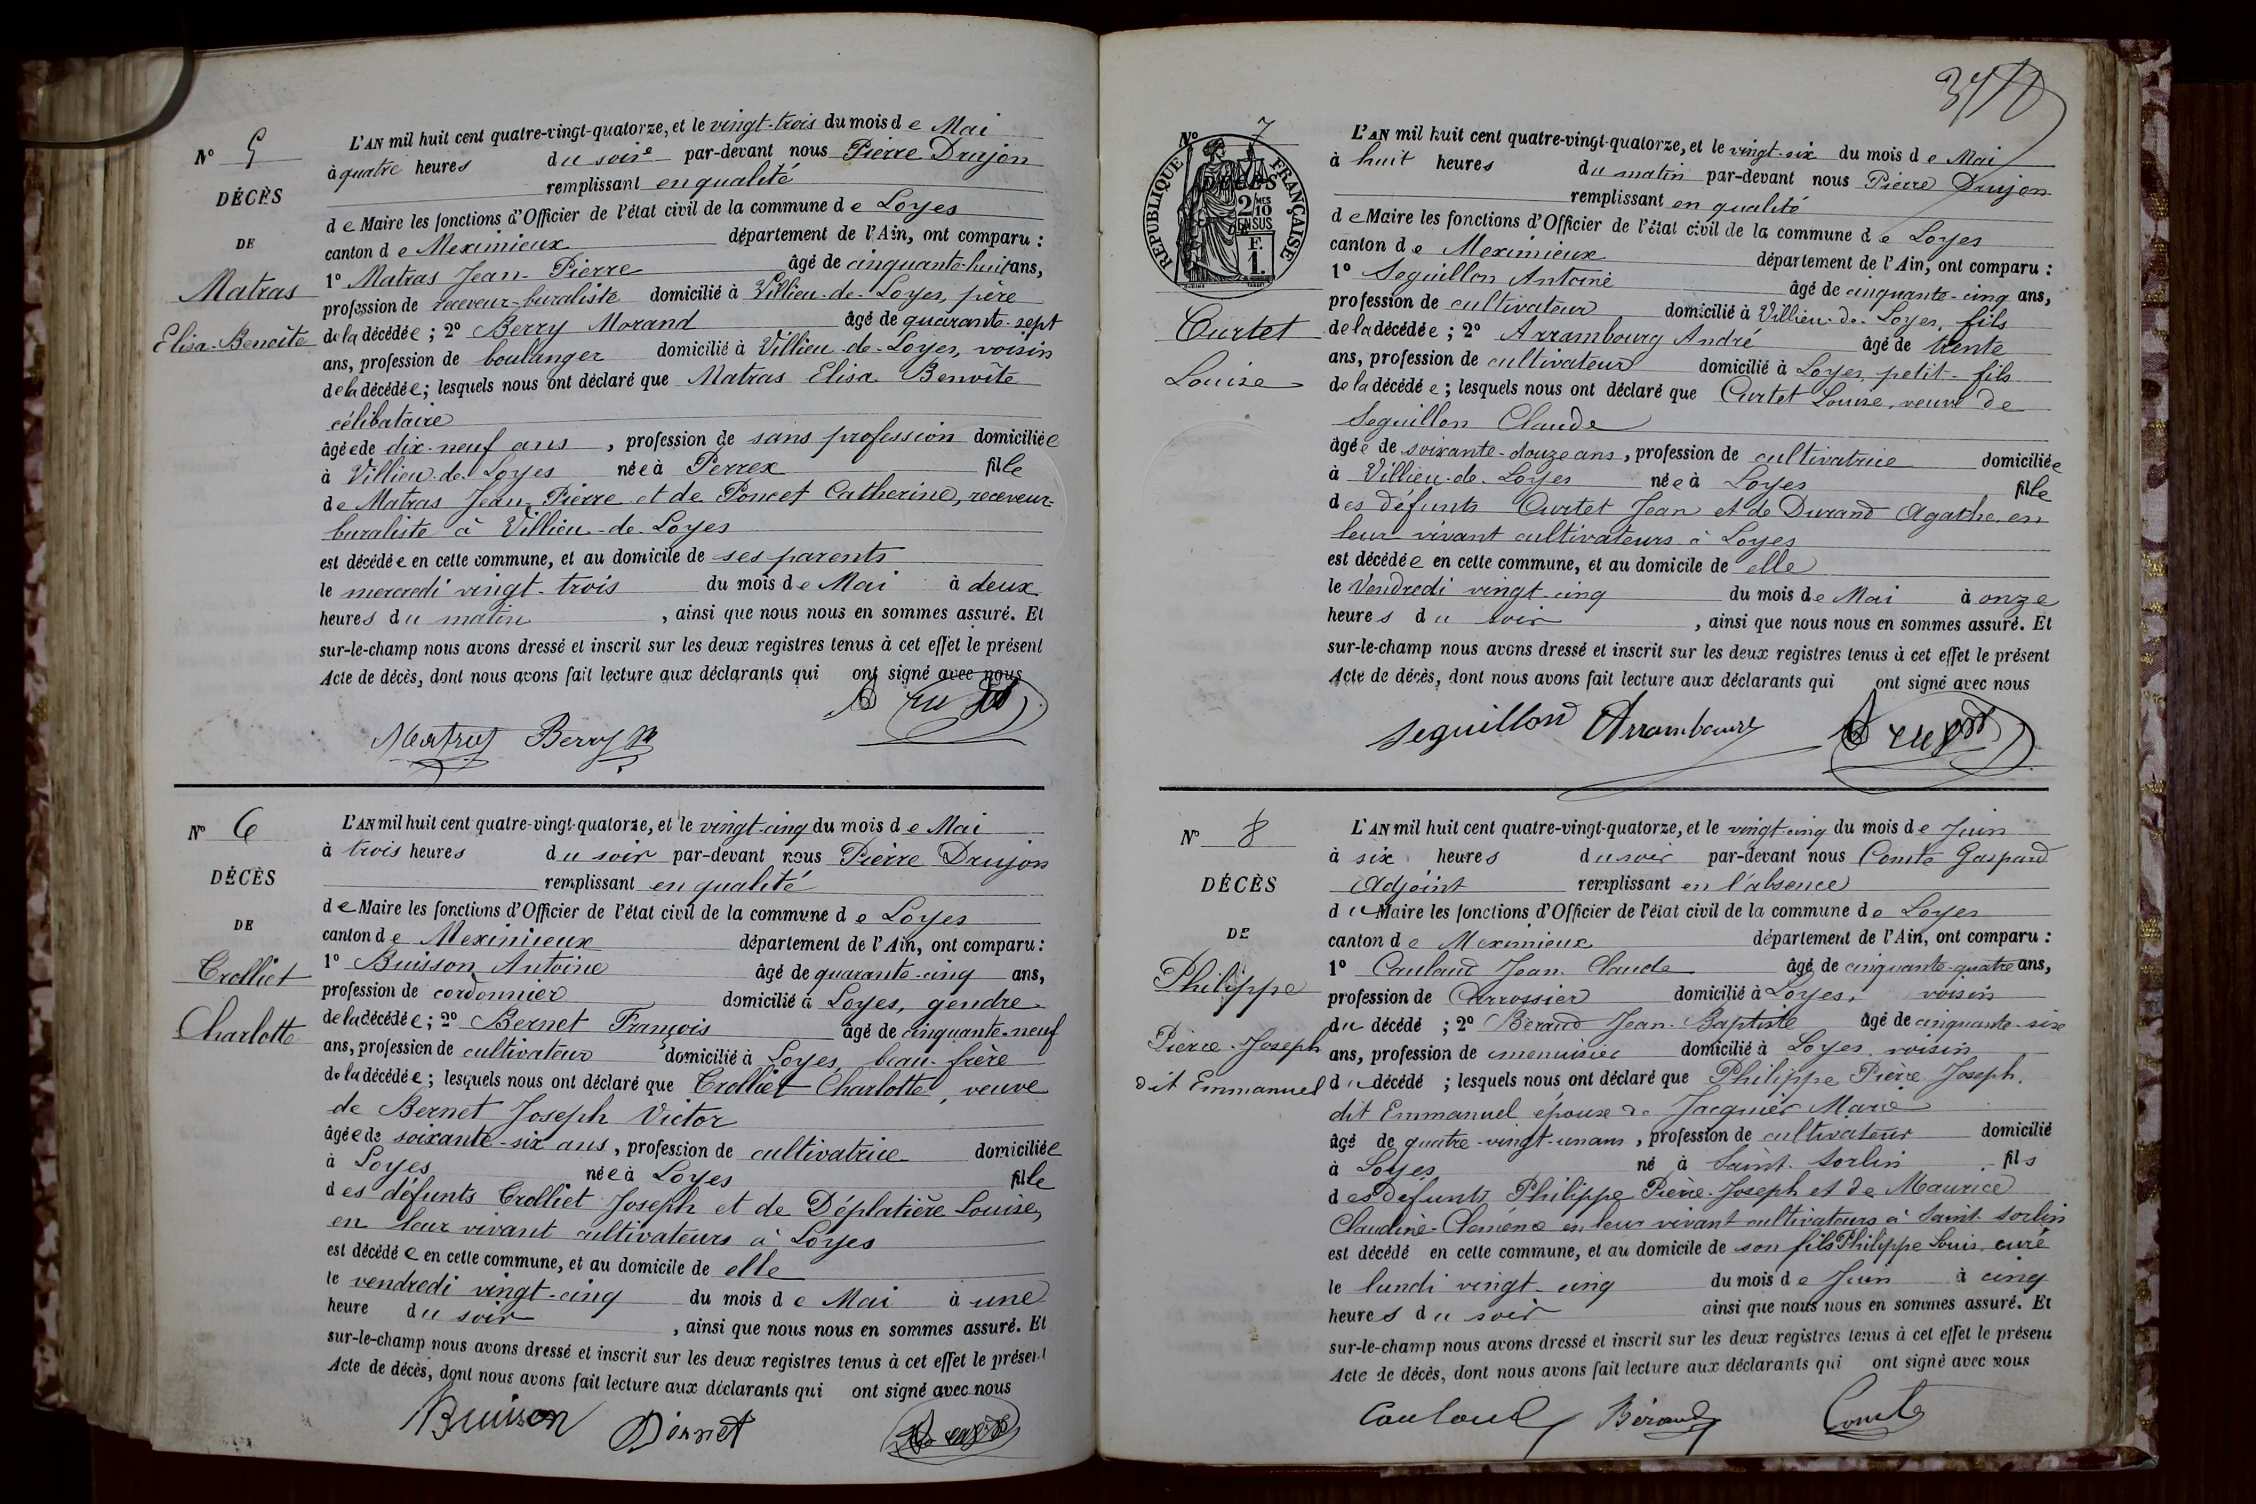 N° 5
DÉCÈS
DE
Matras
Elisa-Benoîte
L'AN mil huit cent quatre-vingt-quatorze, et le vingt-trois du mois de Mai
à quatre heures du soir par-devant nous Pierre Drujon
remplissant en qualité
de Maire les fonctions d'Officier de l'état civil de la commune de Loyes
canton de Meximieux département de l'Ain, ont comparu :
1° Matras Jean-Pierre âgé de cinquante-huit ans,
profession de receveur-buraliste domicilié à Villieu-de-Loyes, père
de la décédée ; 2° Berry Morand âgé de quarante-sept
ans, profession de boulanger domicilié à Villieu-de-Loyes, voisin
de la décédée ; lesquels nous ont déclaré que Matras Elisa Benoîte
célibataire
âgée de dix-neuf ans , profession de sans profession domiciliée
à Villieu-de-Loyes née à Perrex fille
de Matras Jean-Pierre et de Poncet Catherine, receveur-
buraliste à Villieu-de-Loyes
est décédée en cette commune, et au domicile de ses parents
le mercredi vingt-trois du mois de Mai à deux
heures du matin , ainsi que nous nous en sommes assuré. Et
sur-le-champ nous avons dressé et inscrit sur les deux registres tenus à cet effet le présent
Acte de décès, dont nous avons fait lecture aux déclarants qui ont signé avec nous
Drujon
Matras Berry M
N° 6
DÉCÈS
DE
Crolliet
Charlotte
L'AN mil huit cent quatre-vingt-quatorze, et le vingt-cinq du mois de Mai
à trois heures du soir par-devant nous Pierre Drujon
remplissant en qualité
de Maire les fonctions d'Officier de l'état civil de la commune de Loyes
canton de Meximieux département de l'Ain, ont comparu :
1° Buisson Antoine âgé de quarante-cinq ans,
profession de cordonnier domicilié à Loyes, gendre
de la décédée ; 2° Bernet François âgé de cinquante-neuf
ans, profession de cultivateur domicilié à Loyes, beau-frère
de la décédée ; lesquels nous ont déclaré que Crolliet Charlotte, veuve
de Bernet Joseph Victor
âgée de soixante-six ans , profession de cultivatrice domiciliée
à Loyes née à Loyes fille
des défunts Crolliet Joseph et de Déplatière Louise,
en leur vivant cultivateurs à Loyes
est décédée en cette commune, et au domicile de elle
le vendredi vingt-cinq du mois de Mai à une
heure du soir , ainsi que nous nous en sommes assuré. Et
sur-le-champ nous avons dressé et inscrit sur les deux registres tenus à cet effet le présent
Acte de décès, dont nous avons fait lecture aux déclarants qui ont signé avec nous
Buisson Bernet Drujon
N° 7
RÉPUBLIQUE FRANÇAISE
DÉCÈS
2/10 MES
EN SUS
F.
1.
Curtet
Louise
L'AN mil huit cent quatre-vingt-quatorze, et le vingt-six du mois de Mai
à huit heures du matin par-devant nous Pierre Drujon
remplissant en qualité
de Maire les fonctions d'Officier de l'état civil de la commune de Loyes
canton de Meximieux département de l'Ain, ont comparu :
1° Seguillon Antoine âgé de cinquante-cinq ans,
profession de cultivateur domicilié à Villieu-de-Loyes, fils
de la décédée ; 2° Arrambourg André âgé de trente
ans, profession de cultivateur domicilié à Loyes, petit-fils
de la décédée ; lesquels nous ont déclaré que Curtet Louise, veuve de
Seguillon Claude
âgée de soixante-douze ans , profession de cultivatrice domiciliée
à Villieu-de-Loyes née à Loyes fille
des défunts Curtet Jean et de Durand Agathe, en
leur vivant cultivateurs à Loyes
est décédée en cette commune, et au domicile de elle
le Vendredi vingt-cinq du mois de Mai à onze
heures du soir , ainsi que nous nous en sommes assuré. Et
sur-le-champ nous avons dressé et inscrit sur les deux registres tenus à cet effet le présent
Acte de décès, dont nous avons fait lecture aux déclarants qui ont signé avec nous
Seguillon Arrambourg Drujon
N° 8
DÉCÈS
DE
Philippe
Pierre-Joseph
dit Emmanuel
L'AN mil huit cent quatre-vingt-quatorze, et le vingt-cinq du mois de Juin
à six heures du soir par-devant nous Comte Gaspard
Adjoint remplissant en l'absence
du Maire les fonctions d'Officier de l'état civil de la commune de Loyes
canton de Meximieux département de l'Ain, ont comparu :
1° Caulaud Jean-Claude âgé de cinquante-quatre ans,
profession de Carrossier domicilié à Loyes, voisin
du décédé ; 2° Béraud Jean-Baptiste âgé de cinquante-six
ans, profession de menuisier domicilié à Loyes, voisin
du décédé ; lesquels nous ont déclaré que Philippe Pierre-Joseph,
dit Emmanuel époux de Jacquier Marie
âgé de quatre-vingt-un ans , profession de cultivateur domicilié
à Loyes né à Saint-Sorlin fils
des défunts Philippe Pierre-Joseph et de Maurice
Claudine-Clémence en leur vivant cultivateurs à Saint-Sorlin
est décédé en cette commune, et au domicile de son fils Philippe Louis, curé
le lundi vingt-cinq du mois de Juin à cinq
heures du soir ainsi que nous nous en sommes assuré. Et
sur-le-champ nous avons dressé et inscrit sur les deux registres tenus à cet effet le présent
Acte de décès, dont nous avons fait lecture aux déclarants qui ont signé avec nous
Caulaud Béraud Comte